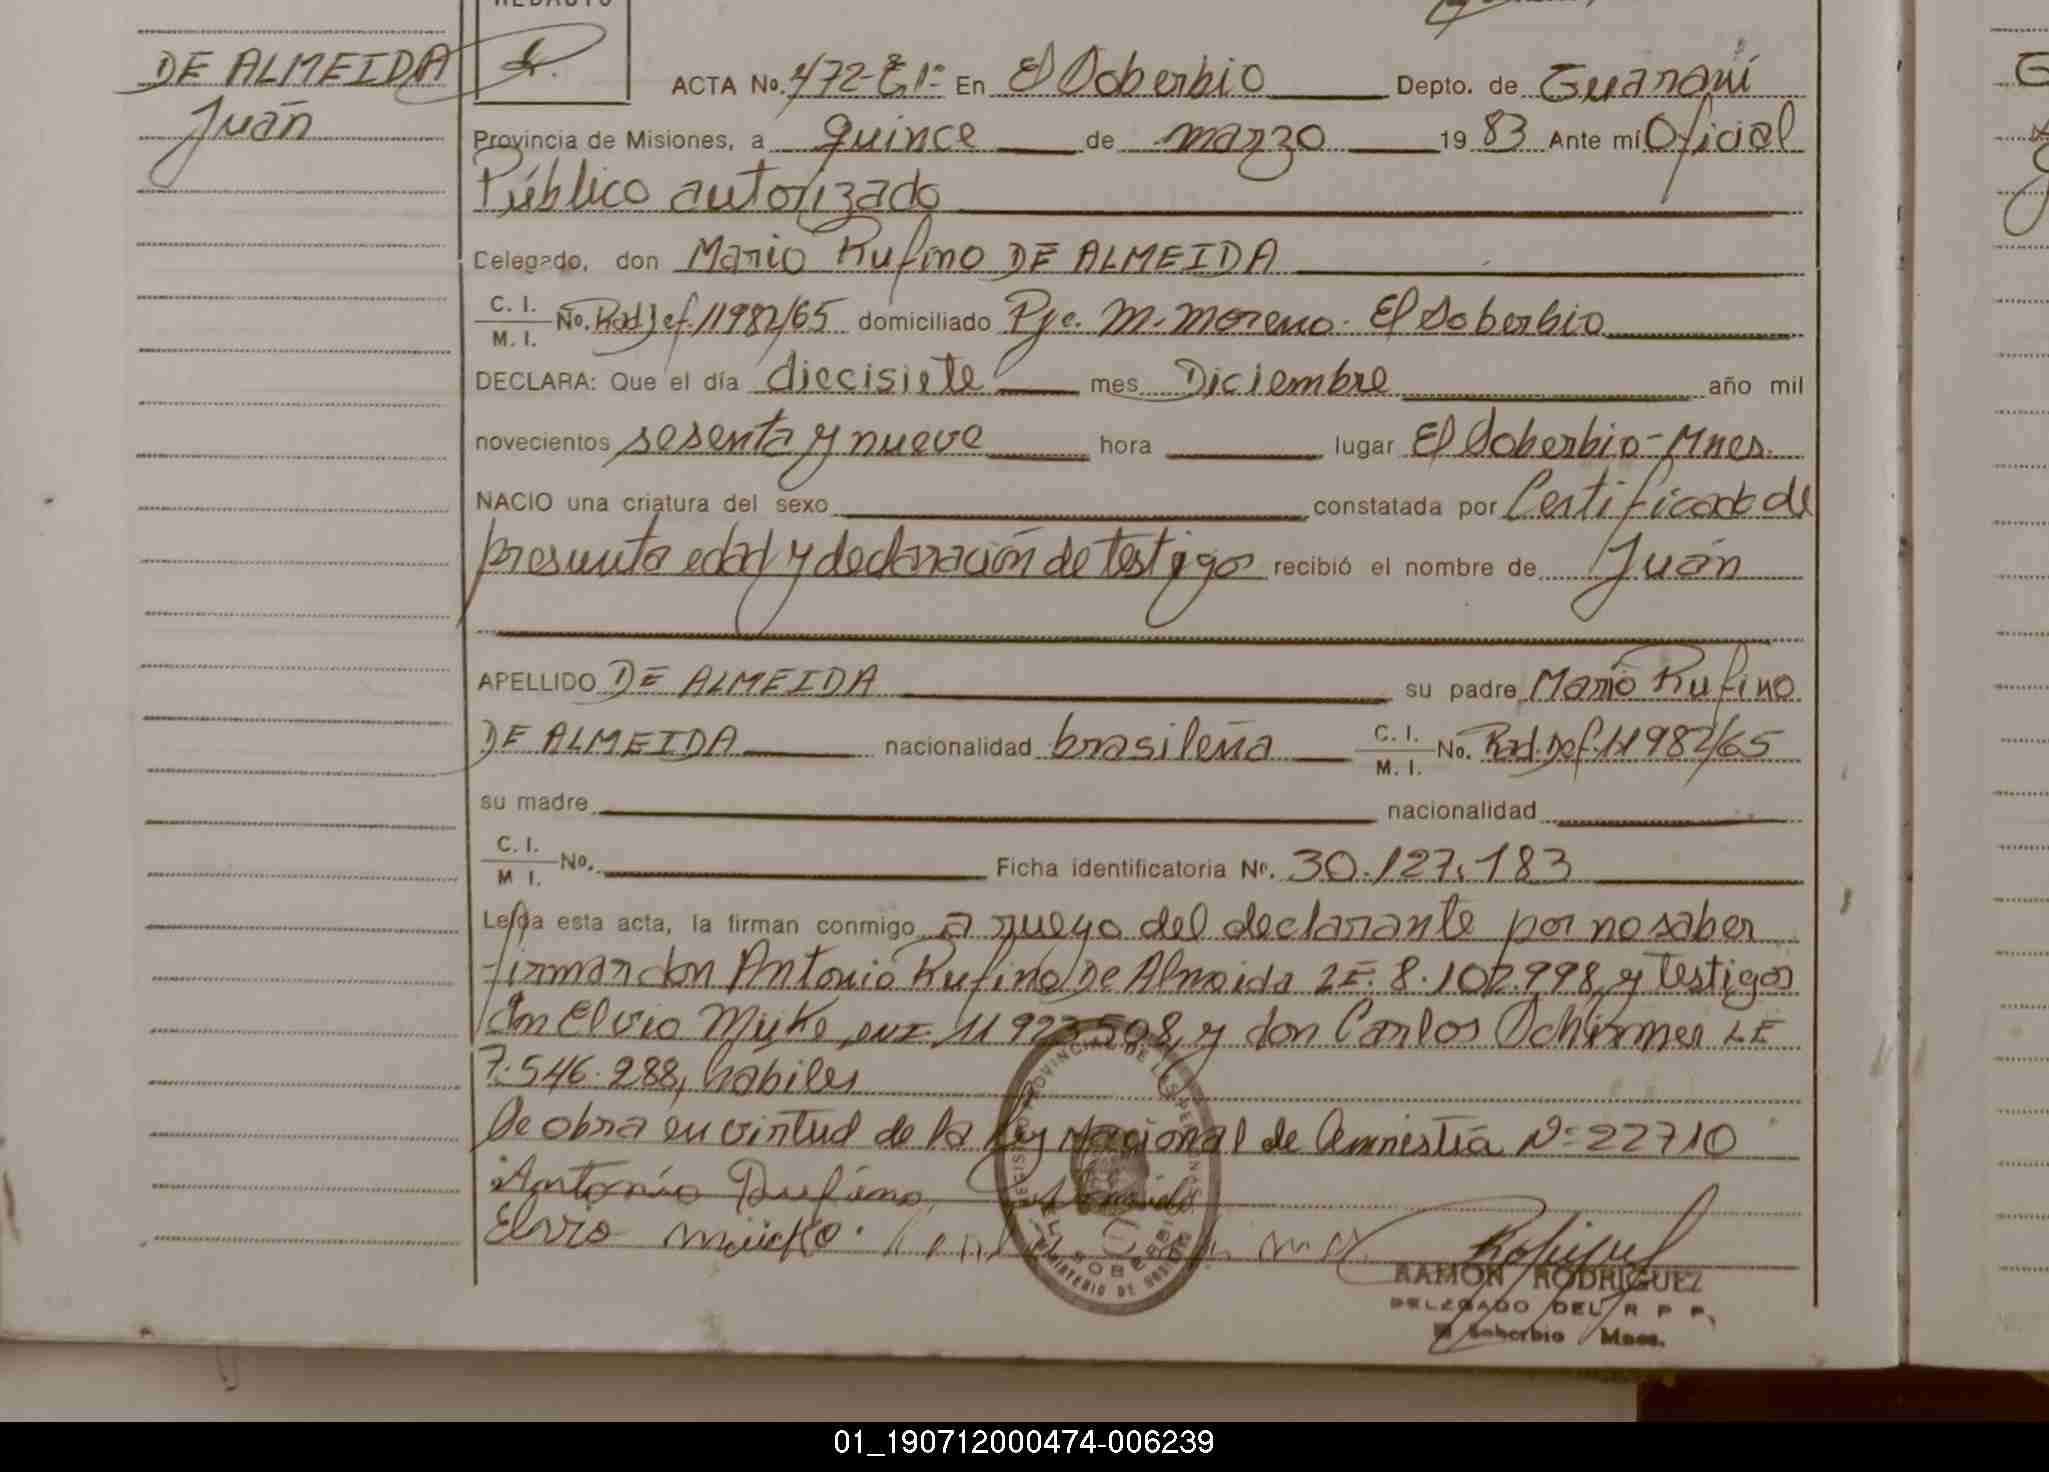 REDACTO
DE ALMEIDA
Juán
ACTA No. 472-E1= En El Soberbio Depto. de Guaraní
Provincia de Misiones, a quince de marzo 1983 Ante mí Oficial
Público autorizado
Delegado, don Mario Rufino DE ALMEIDA
C. I. / M. I. No. Rad. Def. 11982/65 domiciliado Pje. M. Moreno. El Soberbio
DECLARA: Que el día diecisiete mes Diciembre año mil
novecientos sesenta y nueve hora lugar El Soberbio-Mnes.
NACIO una criatura del sexo constatada por Certificado de
presunta edad y declaración de testigos recibió el nombre de Juán
APELLIDO DE ALMEIDA su padre Mario Rufino
DE ALMEIDA nacionalidad brasileña C. I. / M. I. No. Rad. Def. 11982/65
su madre nacionalidad
C. I. / M I. No. Ficha identificatoria Nr. 30.127.183
Leída esta acta, la firman conmigo a ruego del declarante por no saber
firmar don Antonio Rufino De Almeida LE. 8.102.998, y testigos
don Elvio Mücke DNI 11 923 508, y don Carlos Schirmer LE
7.546.288, habiles
De obra en virtud de la Ley Nacional de Amnistía Nº 22710
Antonio Rufino Almeida
Elvio Mücke.
RAMON RODRIGUEZ
DELEGADO DEL R P P.
El Soberbio Mnes.
01_190712000474-006239